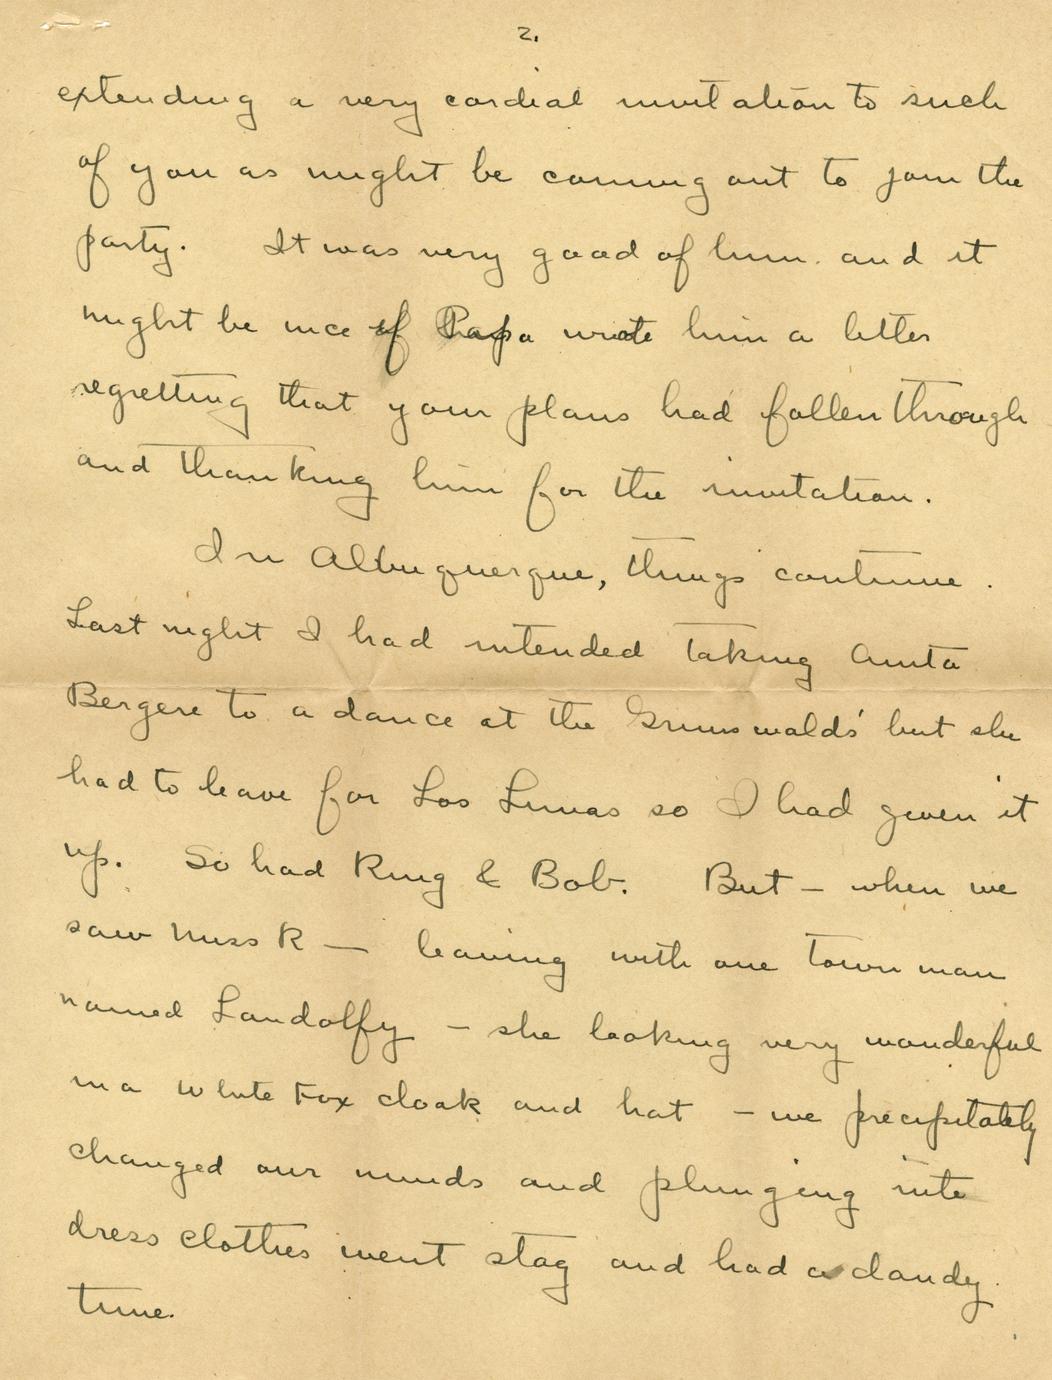 2.
extending a very cordial invitation to such
of you as might be coming out to join the
party. It was very good of him and it
might be nice if Papa wrote him a letter
regretting that your plans had fallen through
and thanking him for the invitation.
In Albuquerque, things continue.
Last night I had intended taking Anita
Bergere to a dance at the Grunswalds' but she
had to leave for Los Lunas so I had given it
up. So had King & Bob. But – when we
saw Miss R — leaving with one town man
named Landolfy – she looking very wonderful
in a white fox cloak and hat – we precipitately
changed our minds and plunging into
dress clothes went stag and had a dandy
time.